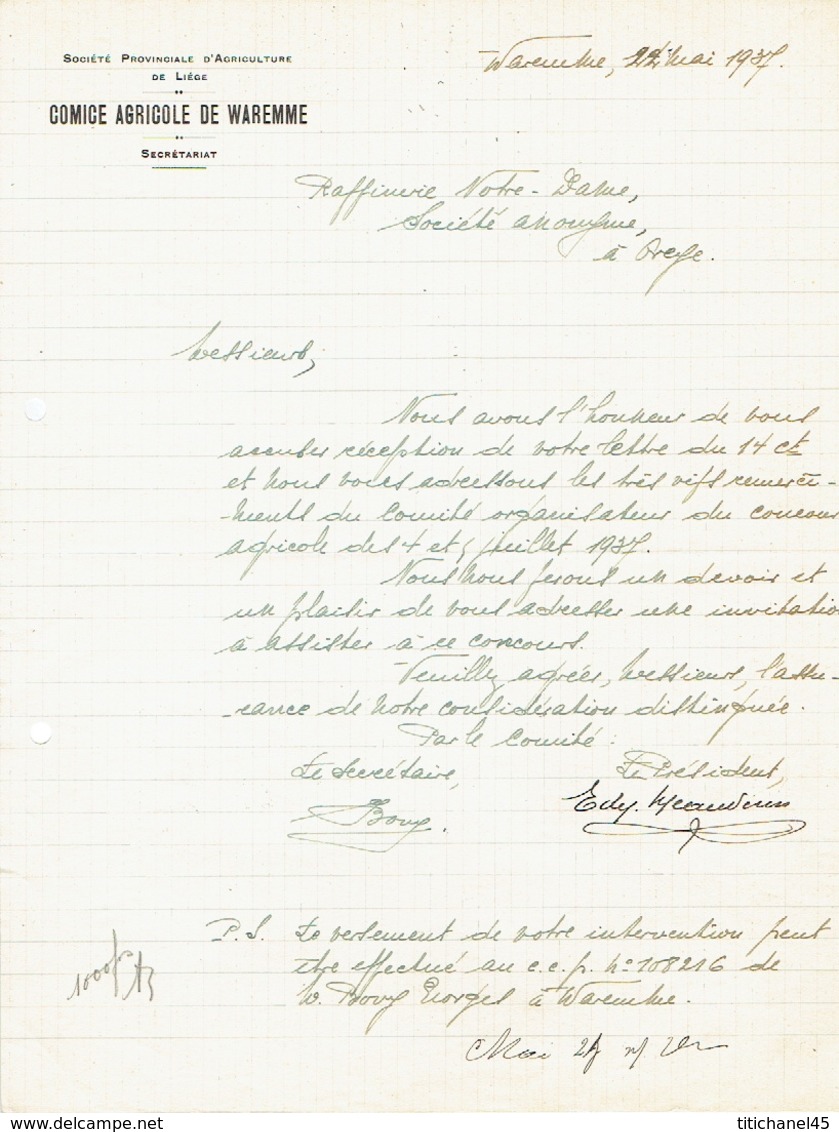 Société Provinciale d'Agriculture
de Liége
COMICE AGRICOLE DE WAREMME
Secrétariat
Waremme, 22 mai 1937.
Raffinerie Notre-Dame,
Société anonyme,
à Oreye.
Messieurs,
Nous avons l'honneur de vous
accuser réception de votre lettre du 14 ct
et nous vous adressons les très vifs remercie-
-ments du Comité organisateur du concours
agricole des 4 et 5 juillet 1937.
Nous nous ferons un devoir et
un plaisir de vous adresser une invitatio
à assister à ce concours.
Veuillez agréer, Messieurs, l'assu-
-rance de notre considération distinguée.
Par le Comité :
Le Secrétaire, Le Président,
Bovy. Edy.
P.S. Le versement de votre intervention peut
être effectué au c.c.p. n° 108216 de
M. Bovy Georges à Waremme.
1000 frs
Mai
delcampe.net
titichanel45